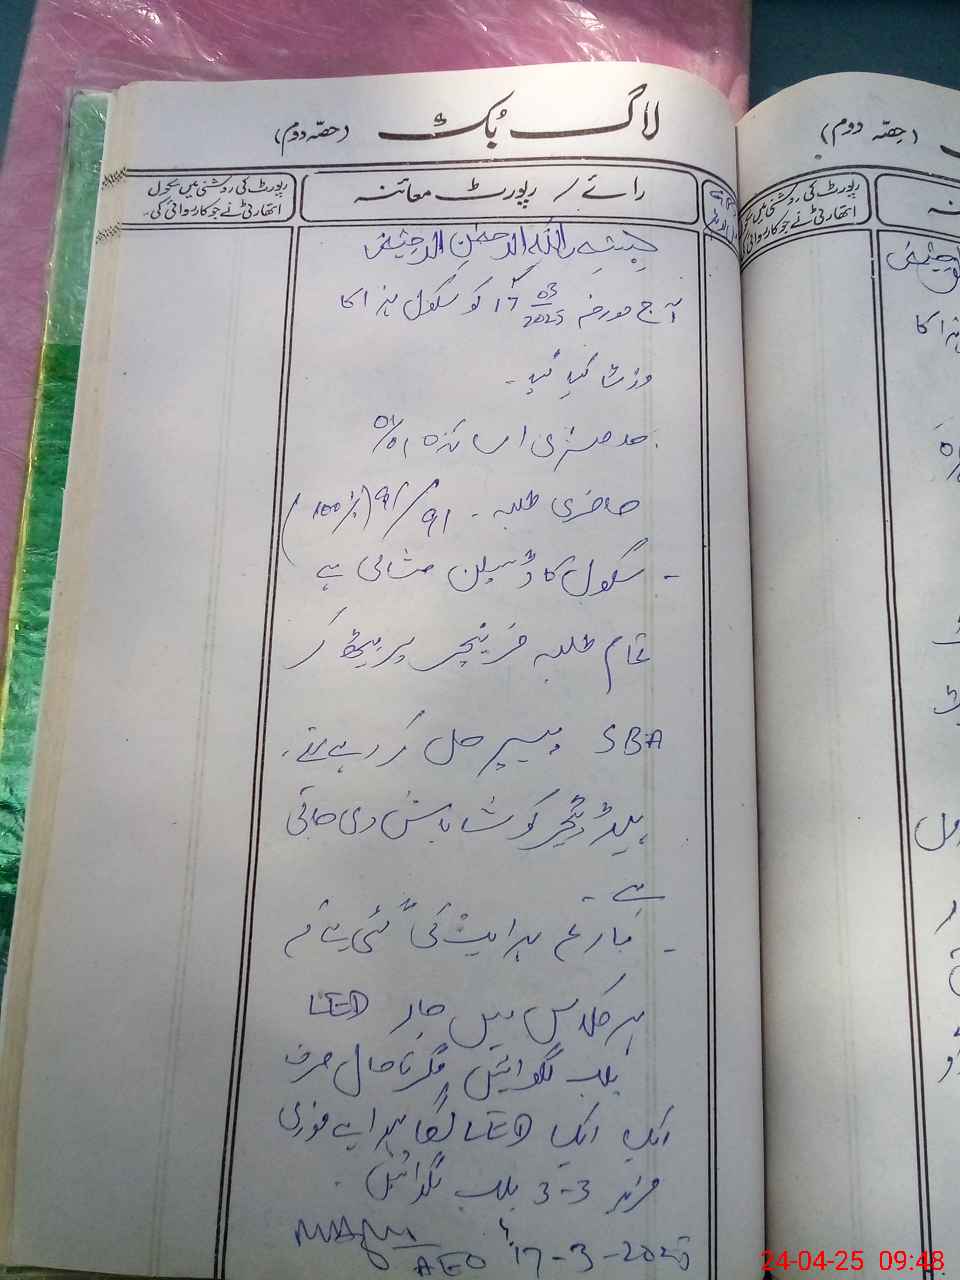 لاگ بُک (حصّہ دوم)
رائے / رپورٹ معائنہ
رپورٹ کی روشنی میں سکول
اتھارٹی نے جو کارروائی کی۔
بسم اللہ الرحمٰن الرحیم
آج مورخہ 17 03/2025 کو سکول ہذا کا
وزٹ کیا گیا۔
حاضری اساتذہ 01/01
حاضری طلبہ ۔ 91/91 (100%)
- سکول کا ڈسپلن مثالی ہے
تمام طلبہ فرنیچر پر بیٹھ کر
SBA پیپر حل کر رہے تھے۔
ہیڈ ٹیچر کو شاباش دی جاتی
ہے ۔
- بارہا ہدایت کی گئی ہے کہ
ہر کلاس میں چار LED
بلب لگوائیں مگر تاحال صرف
ایک ایک LED لگا ہوا ہے فوری
مزید 3-3 بلب لگوائیں ۔
AEO 17-3-2025
(حصّہ دوم)
رپورٹ کی روشنی میں
اتھارٹی نے جو کارروائی کی
24-04-25 09:48